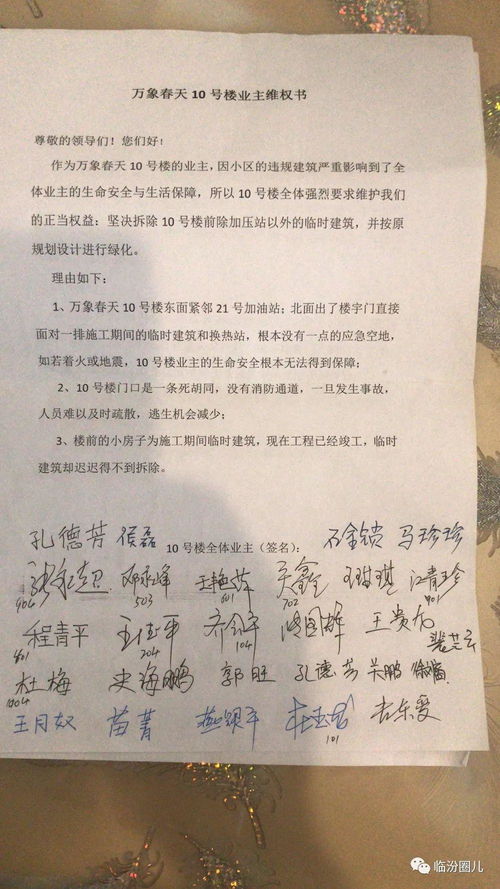 万象春天 10 号楼业主维权书
尊敬的领导们！您们好！
作为万象春天 10 号楼的业主，因小区的违规建筑严重影响到了全
体业主的生命安全与生活保障，所以 10 号楼全体强烈要求维护我们
的正当权益：坚决拆除 10 号楼前除加压站以外的临时建筑，并按原
规划设计进行绿化。
理由如下：
1、万象春天 10 号楼东面紧邻 21 号加油站；北面出了楼宇门直接
面对一排施工期间的临时建筑和换热站，根本没有一点的应急空地，
如若着火或地震，10 号楼业主的生命安全根本无法得到保障；
2、10 号楼门口是一条死胡同，没有消防通道，一旦发生事故，
人员难以及时疏散，逃生机会减少；
3、楼前的小房子为施工期间临时建筑，现在工程已经竣工，临时
建筑却迟迟得不到拆除。
孔德芳 侯磊 石金锁 马珍珍
10 号楼全体业主（签名）：
邓永峰 王艳萍 王琪琪 江青珍
904 503 601 702 901
程青平 王贵花
401 204 104
杜梅 史海鹏 郭旺 孔德芳 关鹏
1004
王月奴 苗菁
101
临汾圈儿